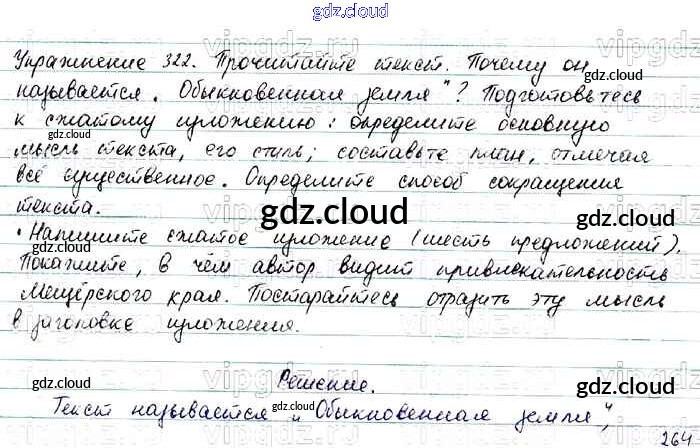 gdz.cloud
Упражнение 322. Прочитайте текст. Почему он
называется „Обыкновенная земля"? Подготовьтесь
к сжатому изложению: определите основную
мысль текста, его стиль; составьте план, отмечая
всё существенное. Определите способ сокращения
текста.
• Напишите сжатое изложение (шесть предложений).
Покажите, в чём автор видит привлекательность
Мещёрского края. Постарайтесь отразить эту мысль
в заголовке изложения.
Решение.
Текст называется „Обыкновенная земля",
264